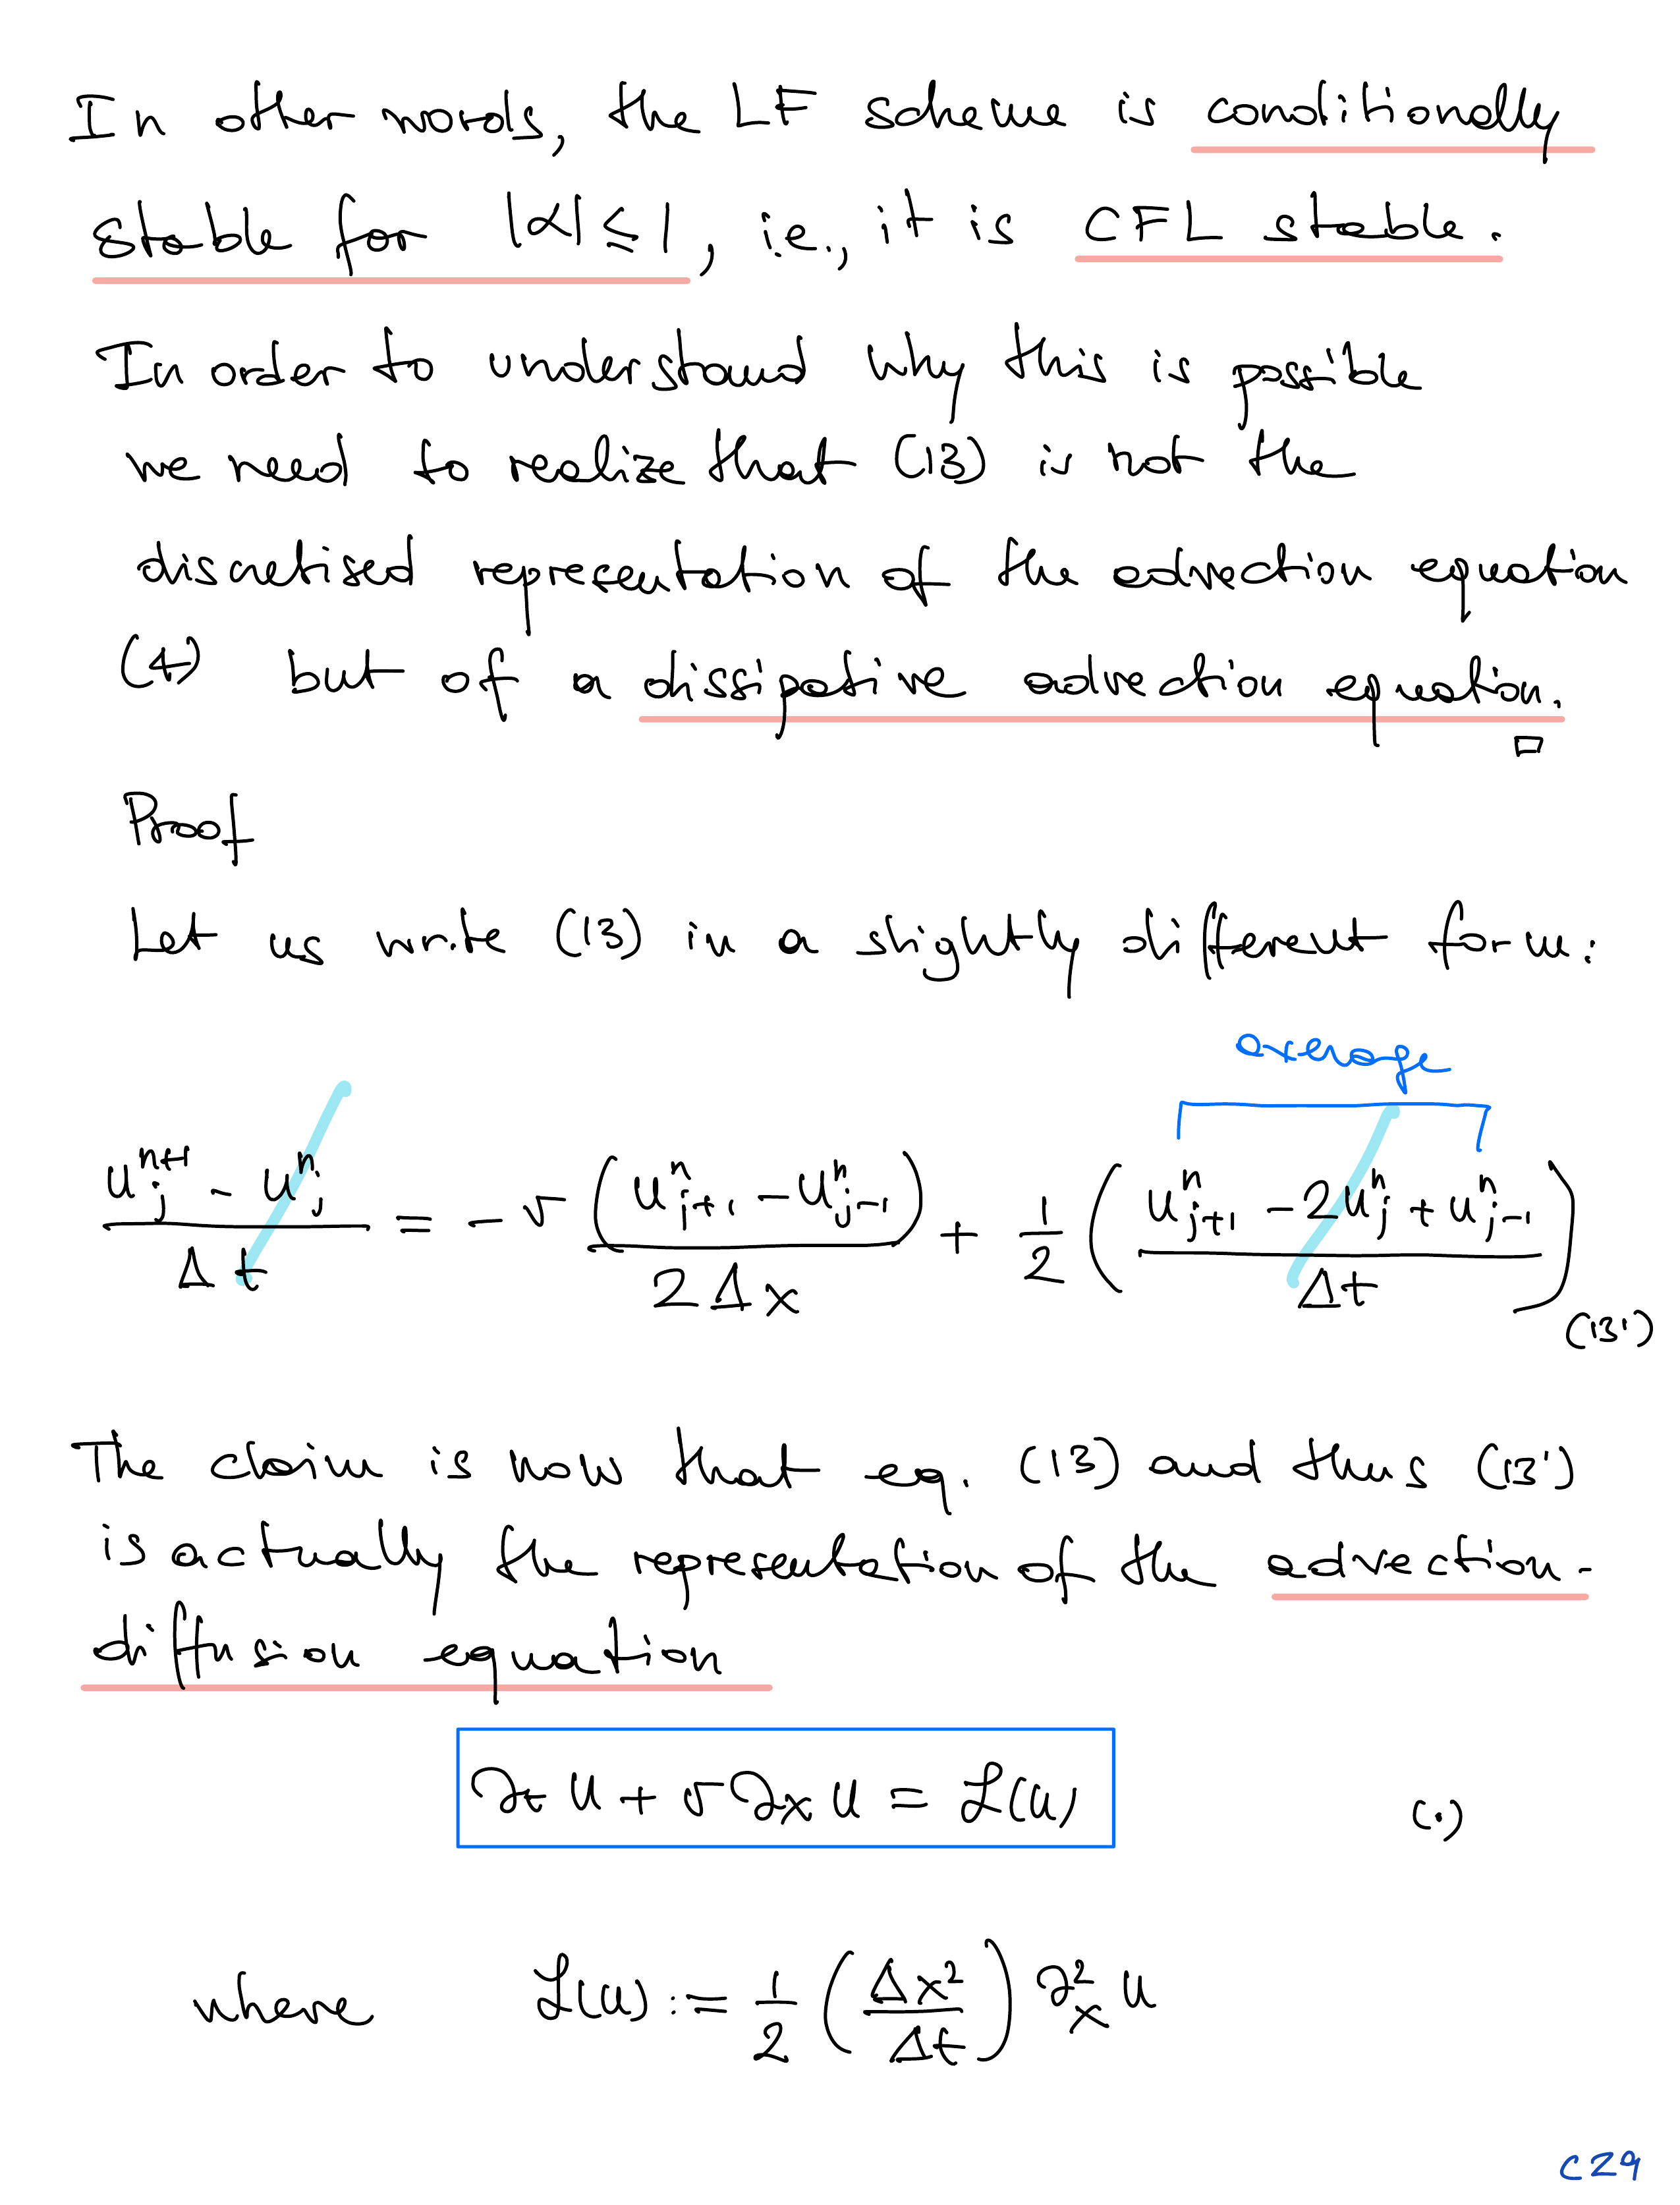 In other words, the LF scheme is conditionally
stable for |α| ≤ 1, i.e., it is CFL stable.
In order to understand why this is possible
we need to realize that (13) is not the
discretised representation of the advection equation
(4) but of a dissipative advection equation.
□
Proof
Let us write (13) in a slightly different form:
average
(u_j^{n+1} - u_j^n)/Δt = -v (u_{j+1}^n - u_{j-1}^n)/(2Δx) + 1/2 ((u_{j+1}^n - 2u_j^n + u_{j-1}^n)/Δt) (13')
The claim is now that eq. (13) and thus (13')
is actually the representation of the advection-
diffusion equation
∂_t u + v ∂_x u = ℒ(u) (·)
where ℒ(u) := 1/2 (Δx²/Δt) ∂_x² u
C29